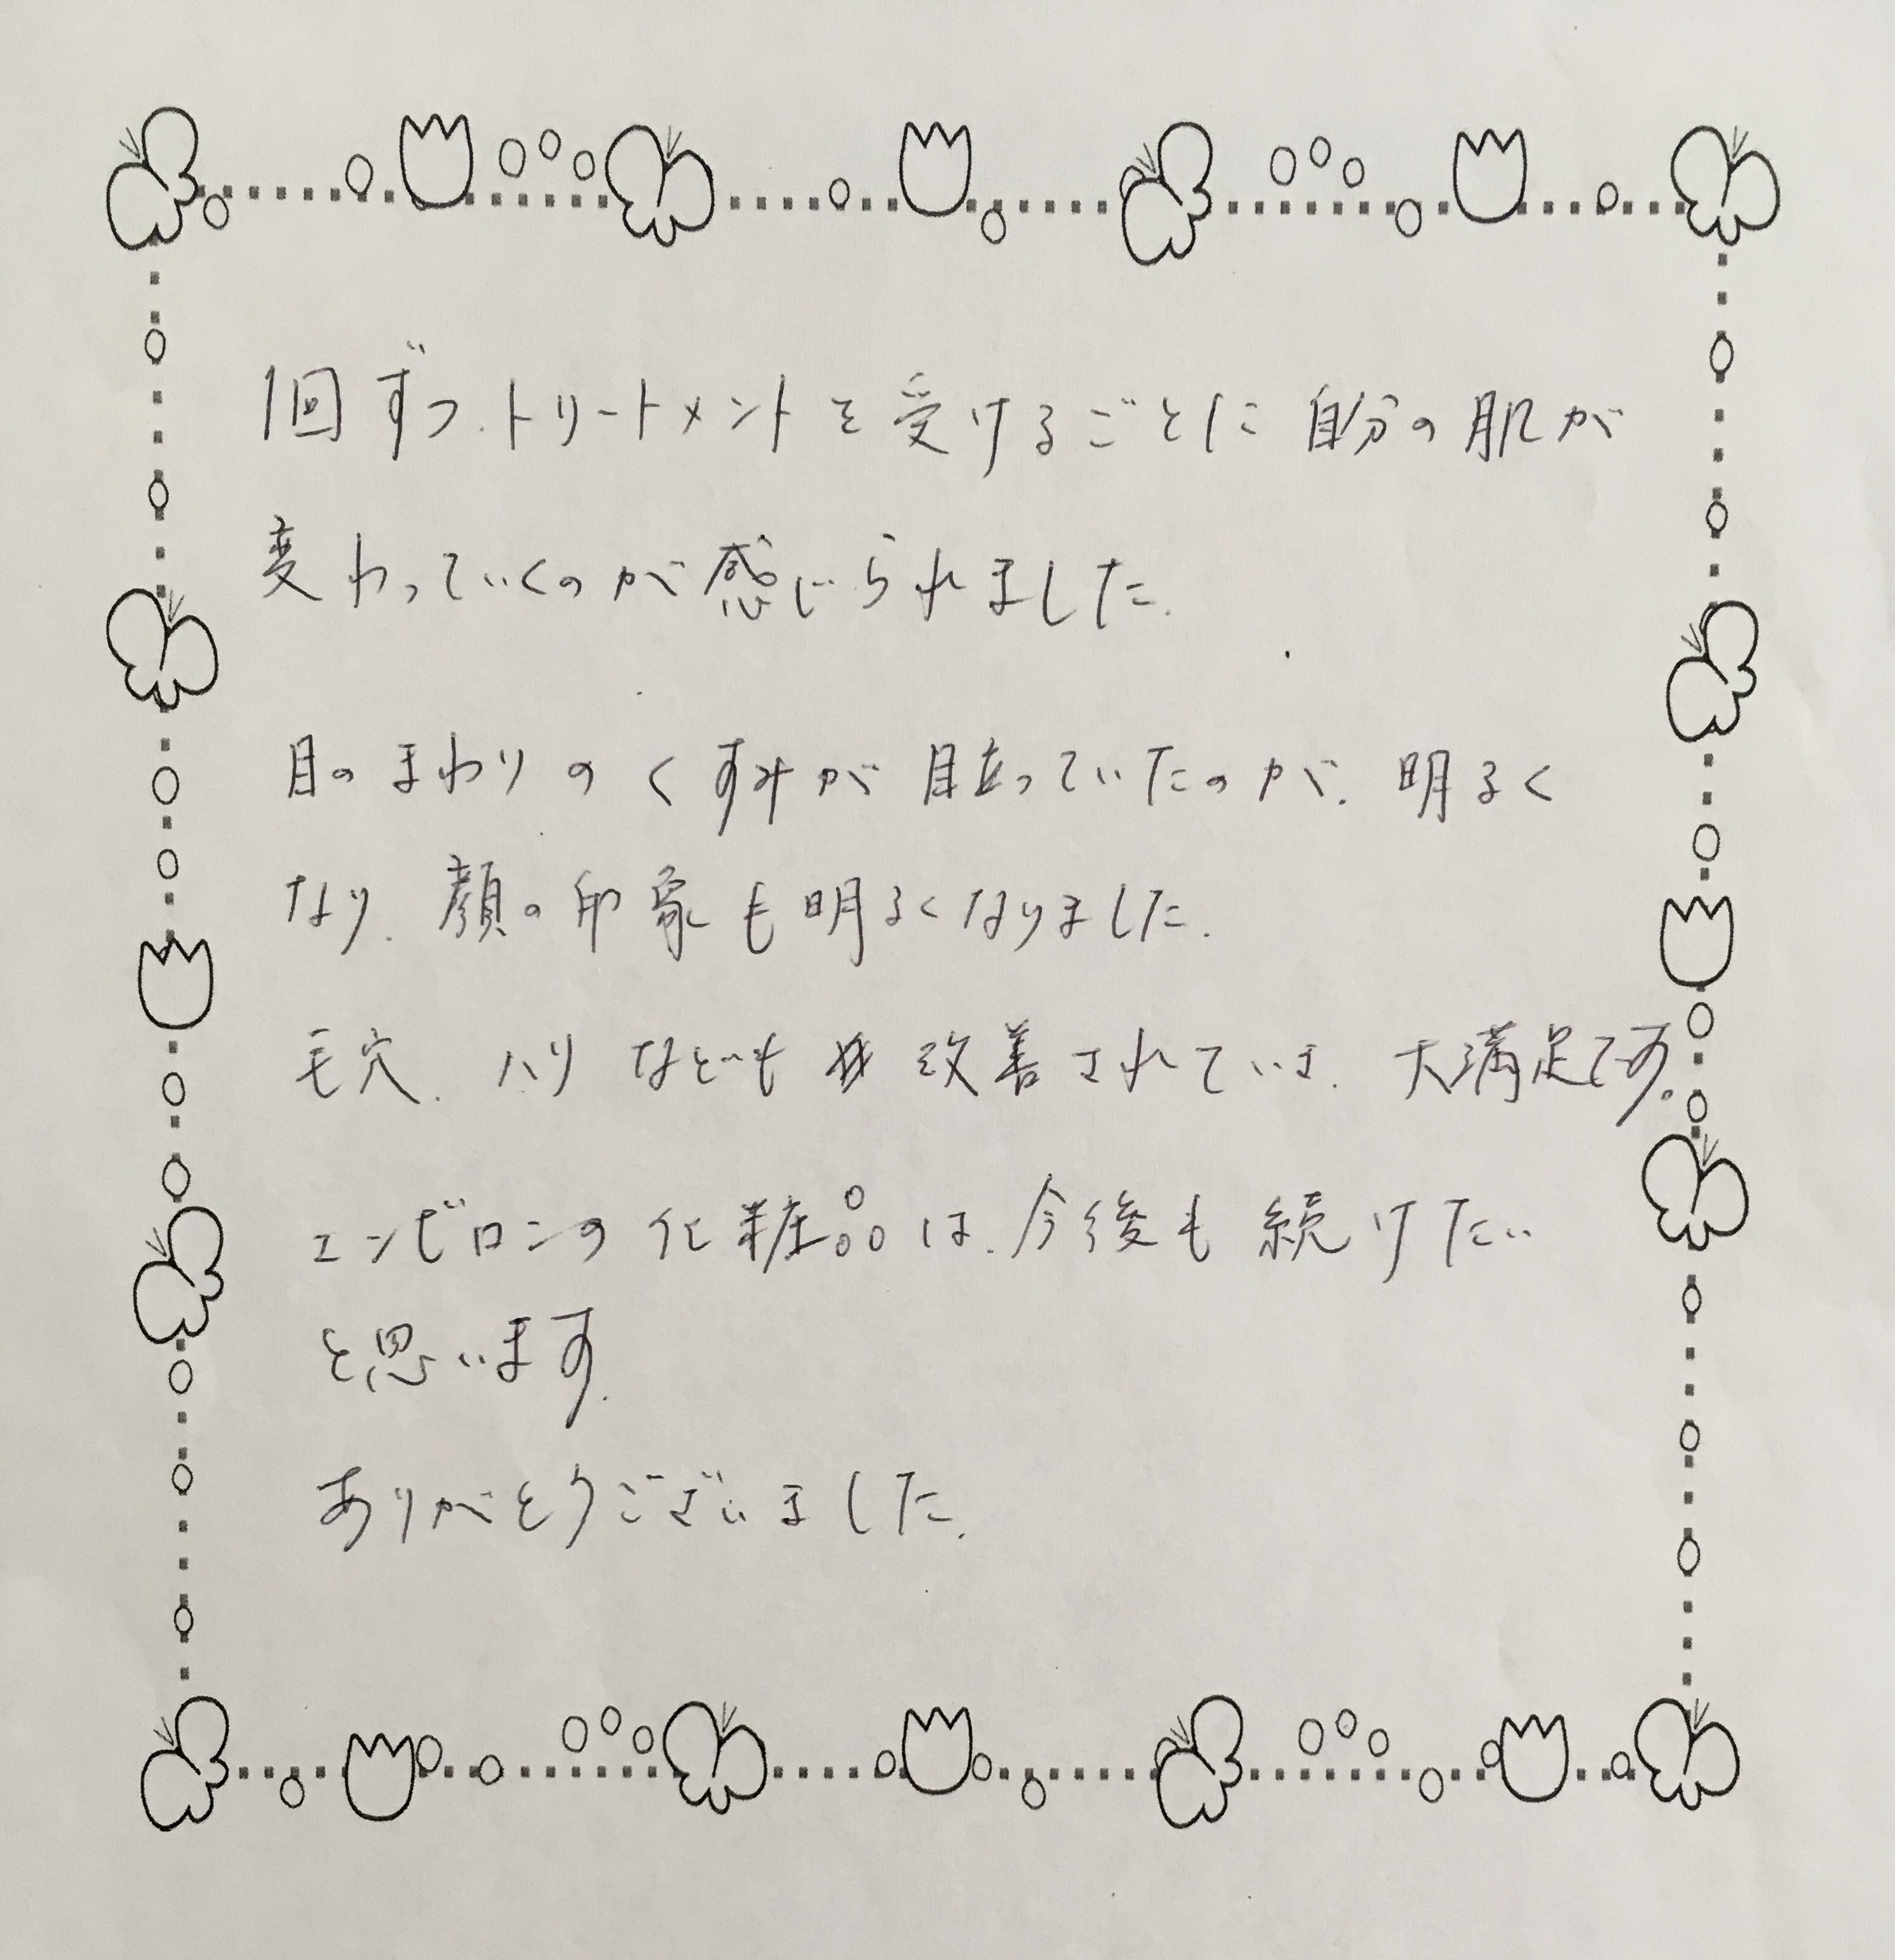 1回ずつ、トリートメントを受けるごとに自分の肌が
変わっていくのが感じられました。
目のまわりのくすみが目立っていたのが、明るく
なり、顔の印象も明るくなりました。
毛穴、ハリなども改善されていき、大満足です。
エンビロンの化粧品は、今後も続けたい
と思います。
ありがとうございました。